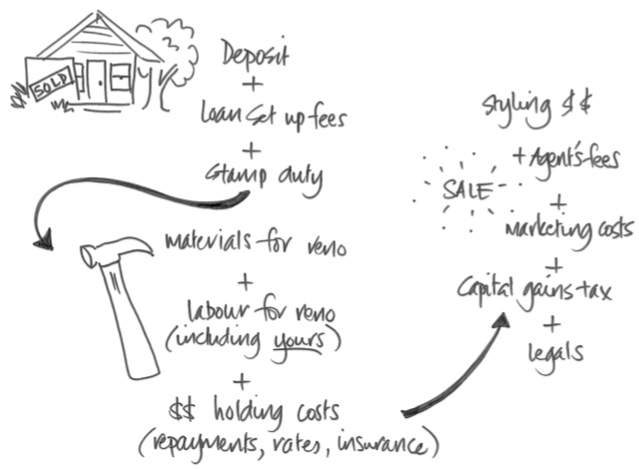 SOLD
Deposit
+
Loan Set up fees
+
Stamp duty
materials for reno
+
labour for reno
(including yours)
+
$$ holding costs
(repayments, rates, insurance)
Styling $$
+ Agent's fees
SALE
+
marketing costs
+
Capital gains tax
+
legals